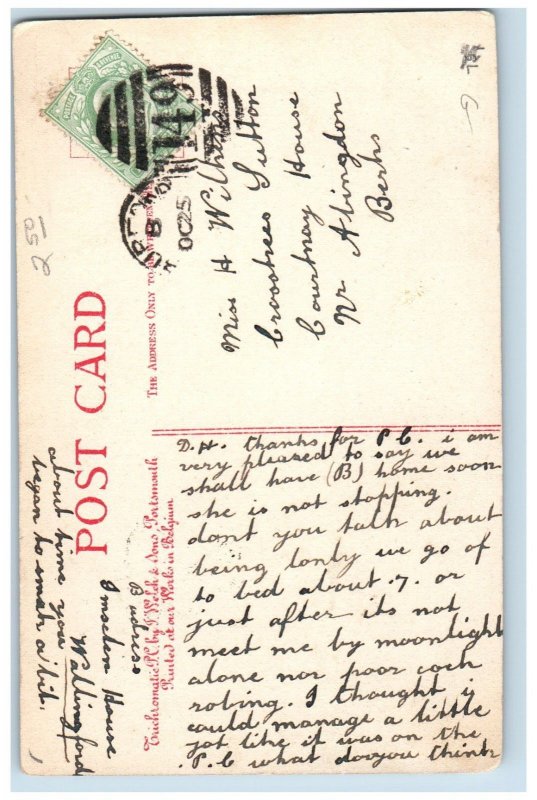 POST CARD
THE ADDRESS ONLY TO BE WRITTEN
149
B
OC 25
Miss H Wilkins
Crosstrees Sutton
Courtnay House
Nr Abingdon
Berks
2 50
D.H. thanks for P.C. i am
very pleased to say we
shall have (B) home soon
she is not stopping.
dont you talk about
being lonly we go of
to bed about .7. or
just after its not
meet me by moonlight
alone nor poor cock
robing. I thought i
could manage a little
jot like it was on the
P.C what do you think
Trichromatic P.C. by J. Welch & Sons, Portsmouth
Printed at our Works in Belgium
Budress
House
Wallingford
about time you
began to smak a bit.